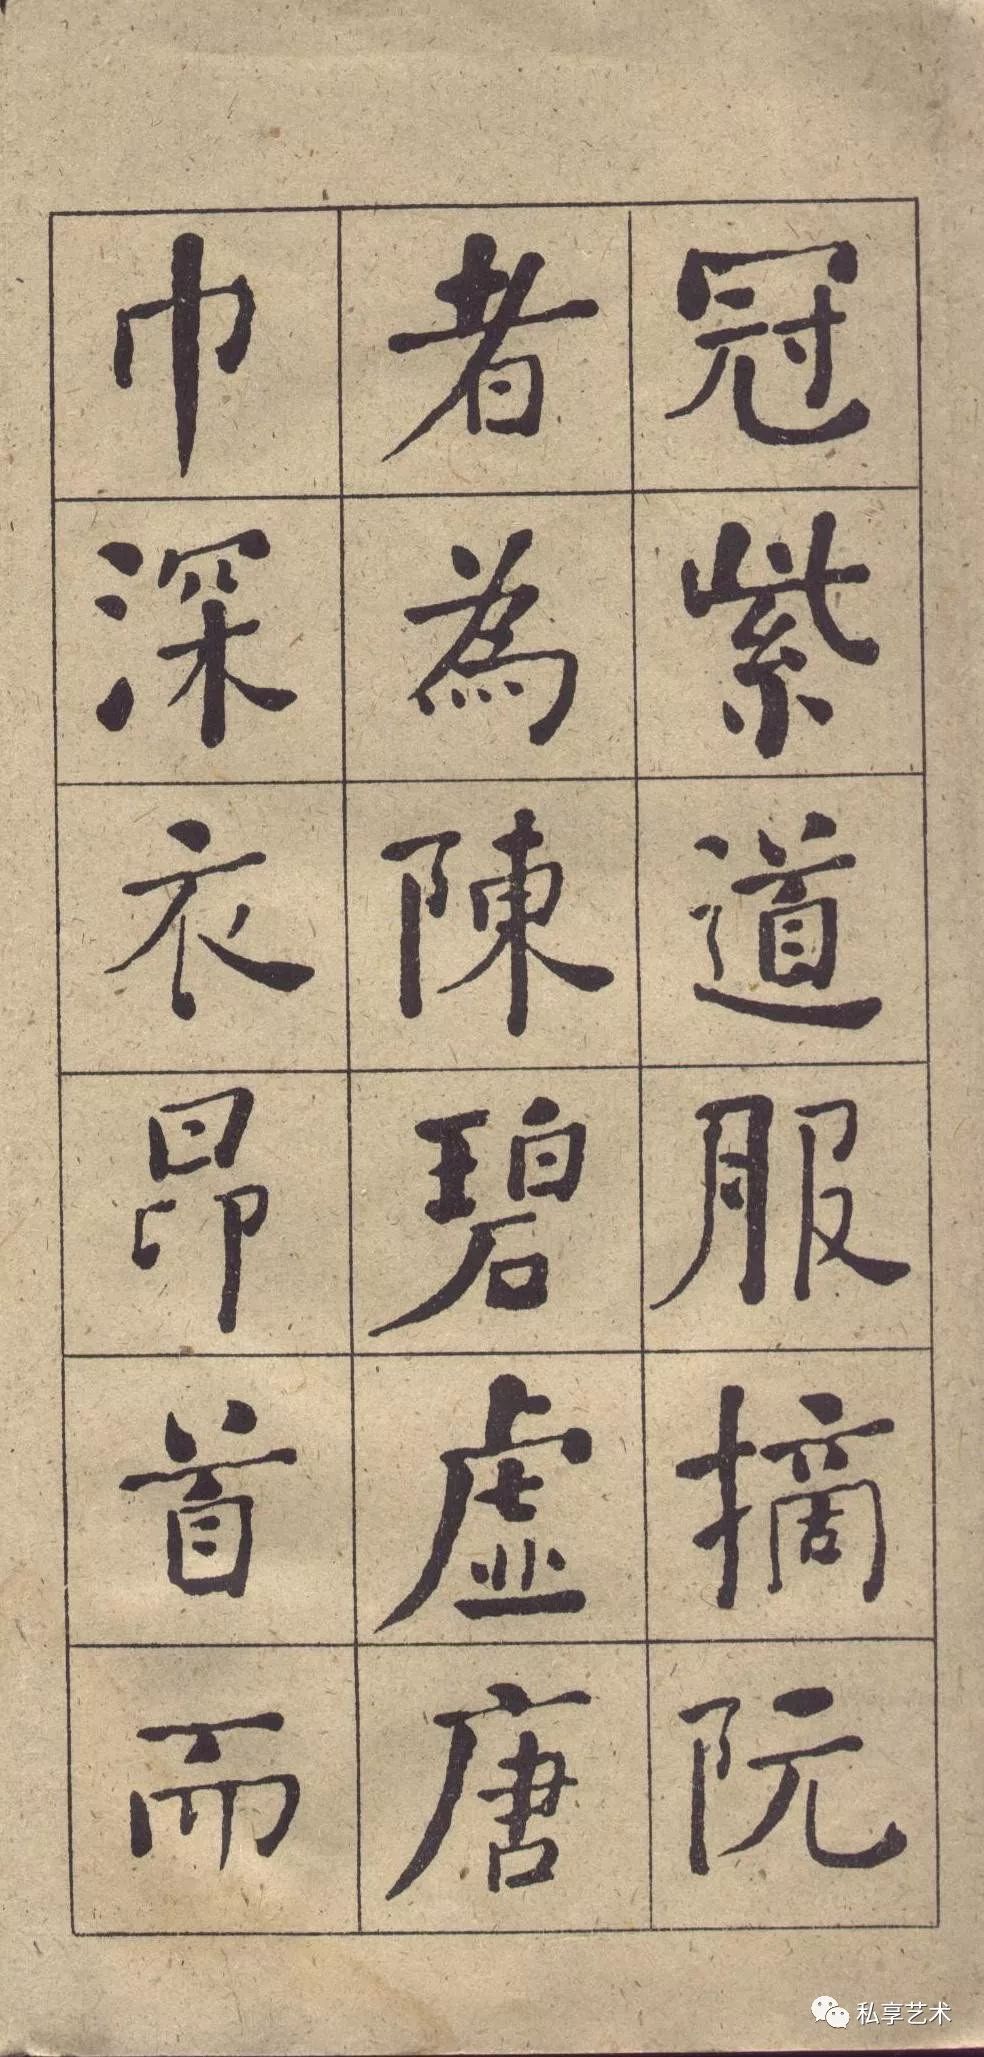 冠紫道服摘阮
者為陳碧虛唐
巾深衣昂首而
私享艺术